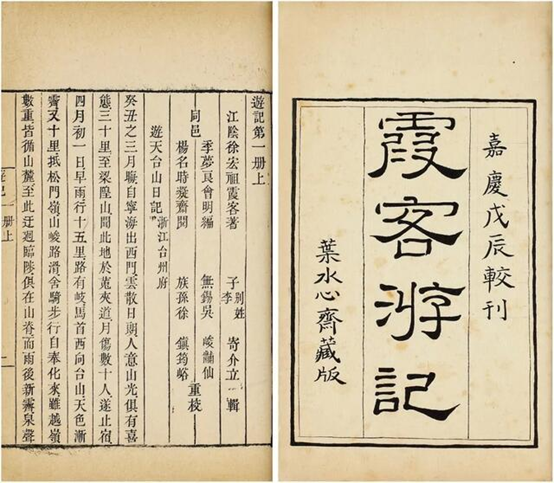 嘉慶戊辰較刊
霞客游記
葉水心齋藏版
遊記第一册上
江陰徐宏祖霞客著 子李別姓寄介立輯
季夢良會明編 無錫吳峻仙
同邑 重校
楊名時凝齋閱 族孫徐鎮筠峪
遊天台山日記 浙江台州府
癸丑之三月晦自寧海出西門雲散日朗人意山光俱有喜
態三十里至梁隍山聞此地於菟夾道月傷數十人遂止宿
四月初一日早雨行十五里路有岐馬首西向台山天色漸
霽又十里抵松門嶺山峻路滑舍騎步行自奉化來雖越嶺
數重皆循山麓至此迂迴臨陟俱在山脊而雨後新霽泉聲
遊記 一册上 一